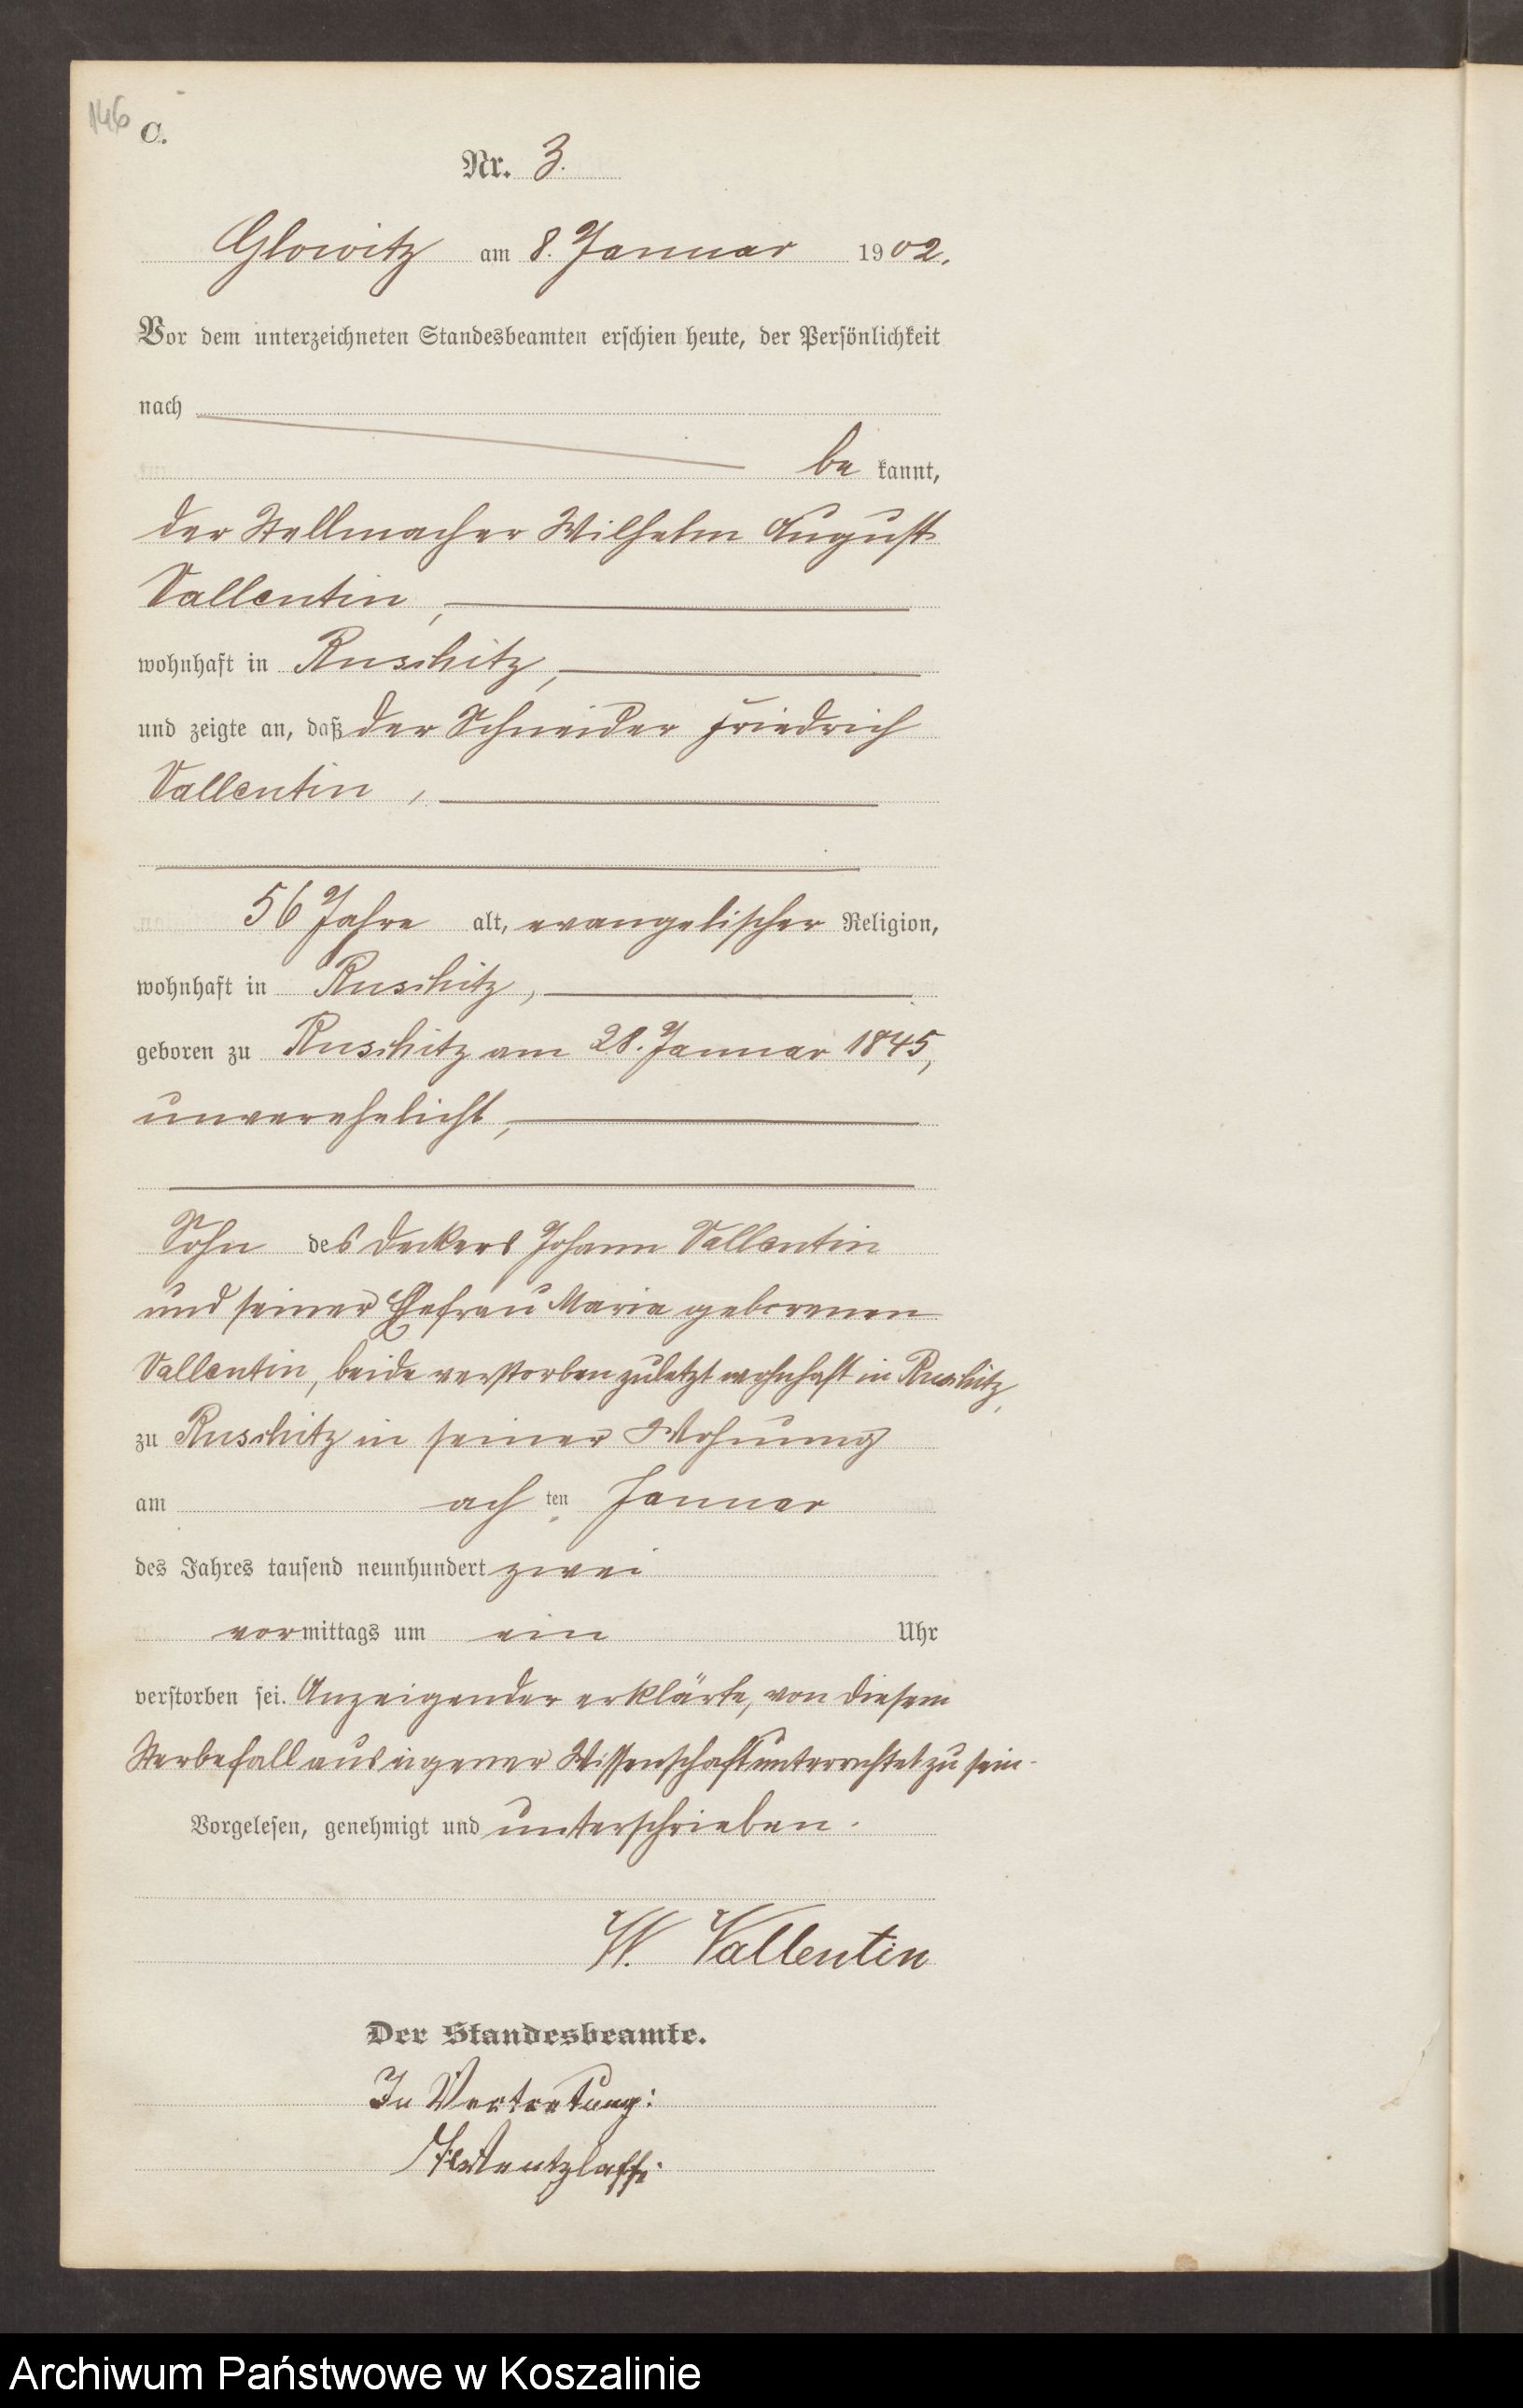 146
C.
Nr. 3.
Glowitz am 8. Januar 1902.
Vor dem unterzeichneten Standesbeamten erschien heute, der Persönlichkeit
nach
be kannt,
der Stellmacher Wilhelm August
Vallentin,
wohnhaft in Ruschitz,
und zeigte an, daß der Schneider Friedrich
Vallentin,
56 Jahre alt, evangelischer Religion,
wohnhaft in Ruschitz,
geboren zu Ruschitz am 28. Januar 1845,
unverehelicht,
Sohn des Deckers Johann Vallentin
und seiner Ehefrau Maria geborenen
Vallentin, beide verstorben zuletzt wohnhaft in Ruschitz,
zu Ruschitz in seiner Wohnung
am ach ten Januar
des Jahres tausend neunhundert zwei
vormittags um ein Uhr
verstorben sei. Anzeigender erklärte, von diesem
Sterbefall aus eigener Wissenschaft unterrichtet zu sein.
Vorgelesen, genehmigt und unterschrieben.
W. Vallentin
Der Standesbeamte.
In Vertretung:
Archiwum Państwowe w Koszalinie